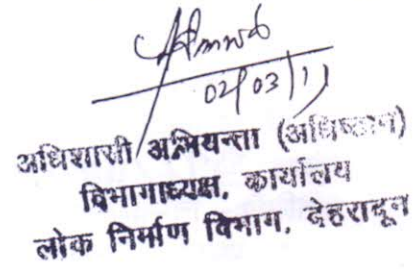 02/03/11
अधिशासी अभियन्ता (अधिष्ठान)
विभागाध्यक्ष, कार्यालय
लोक निर्माण विभाग, देहरादून